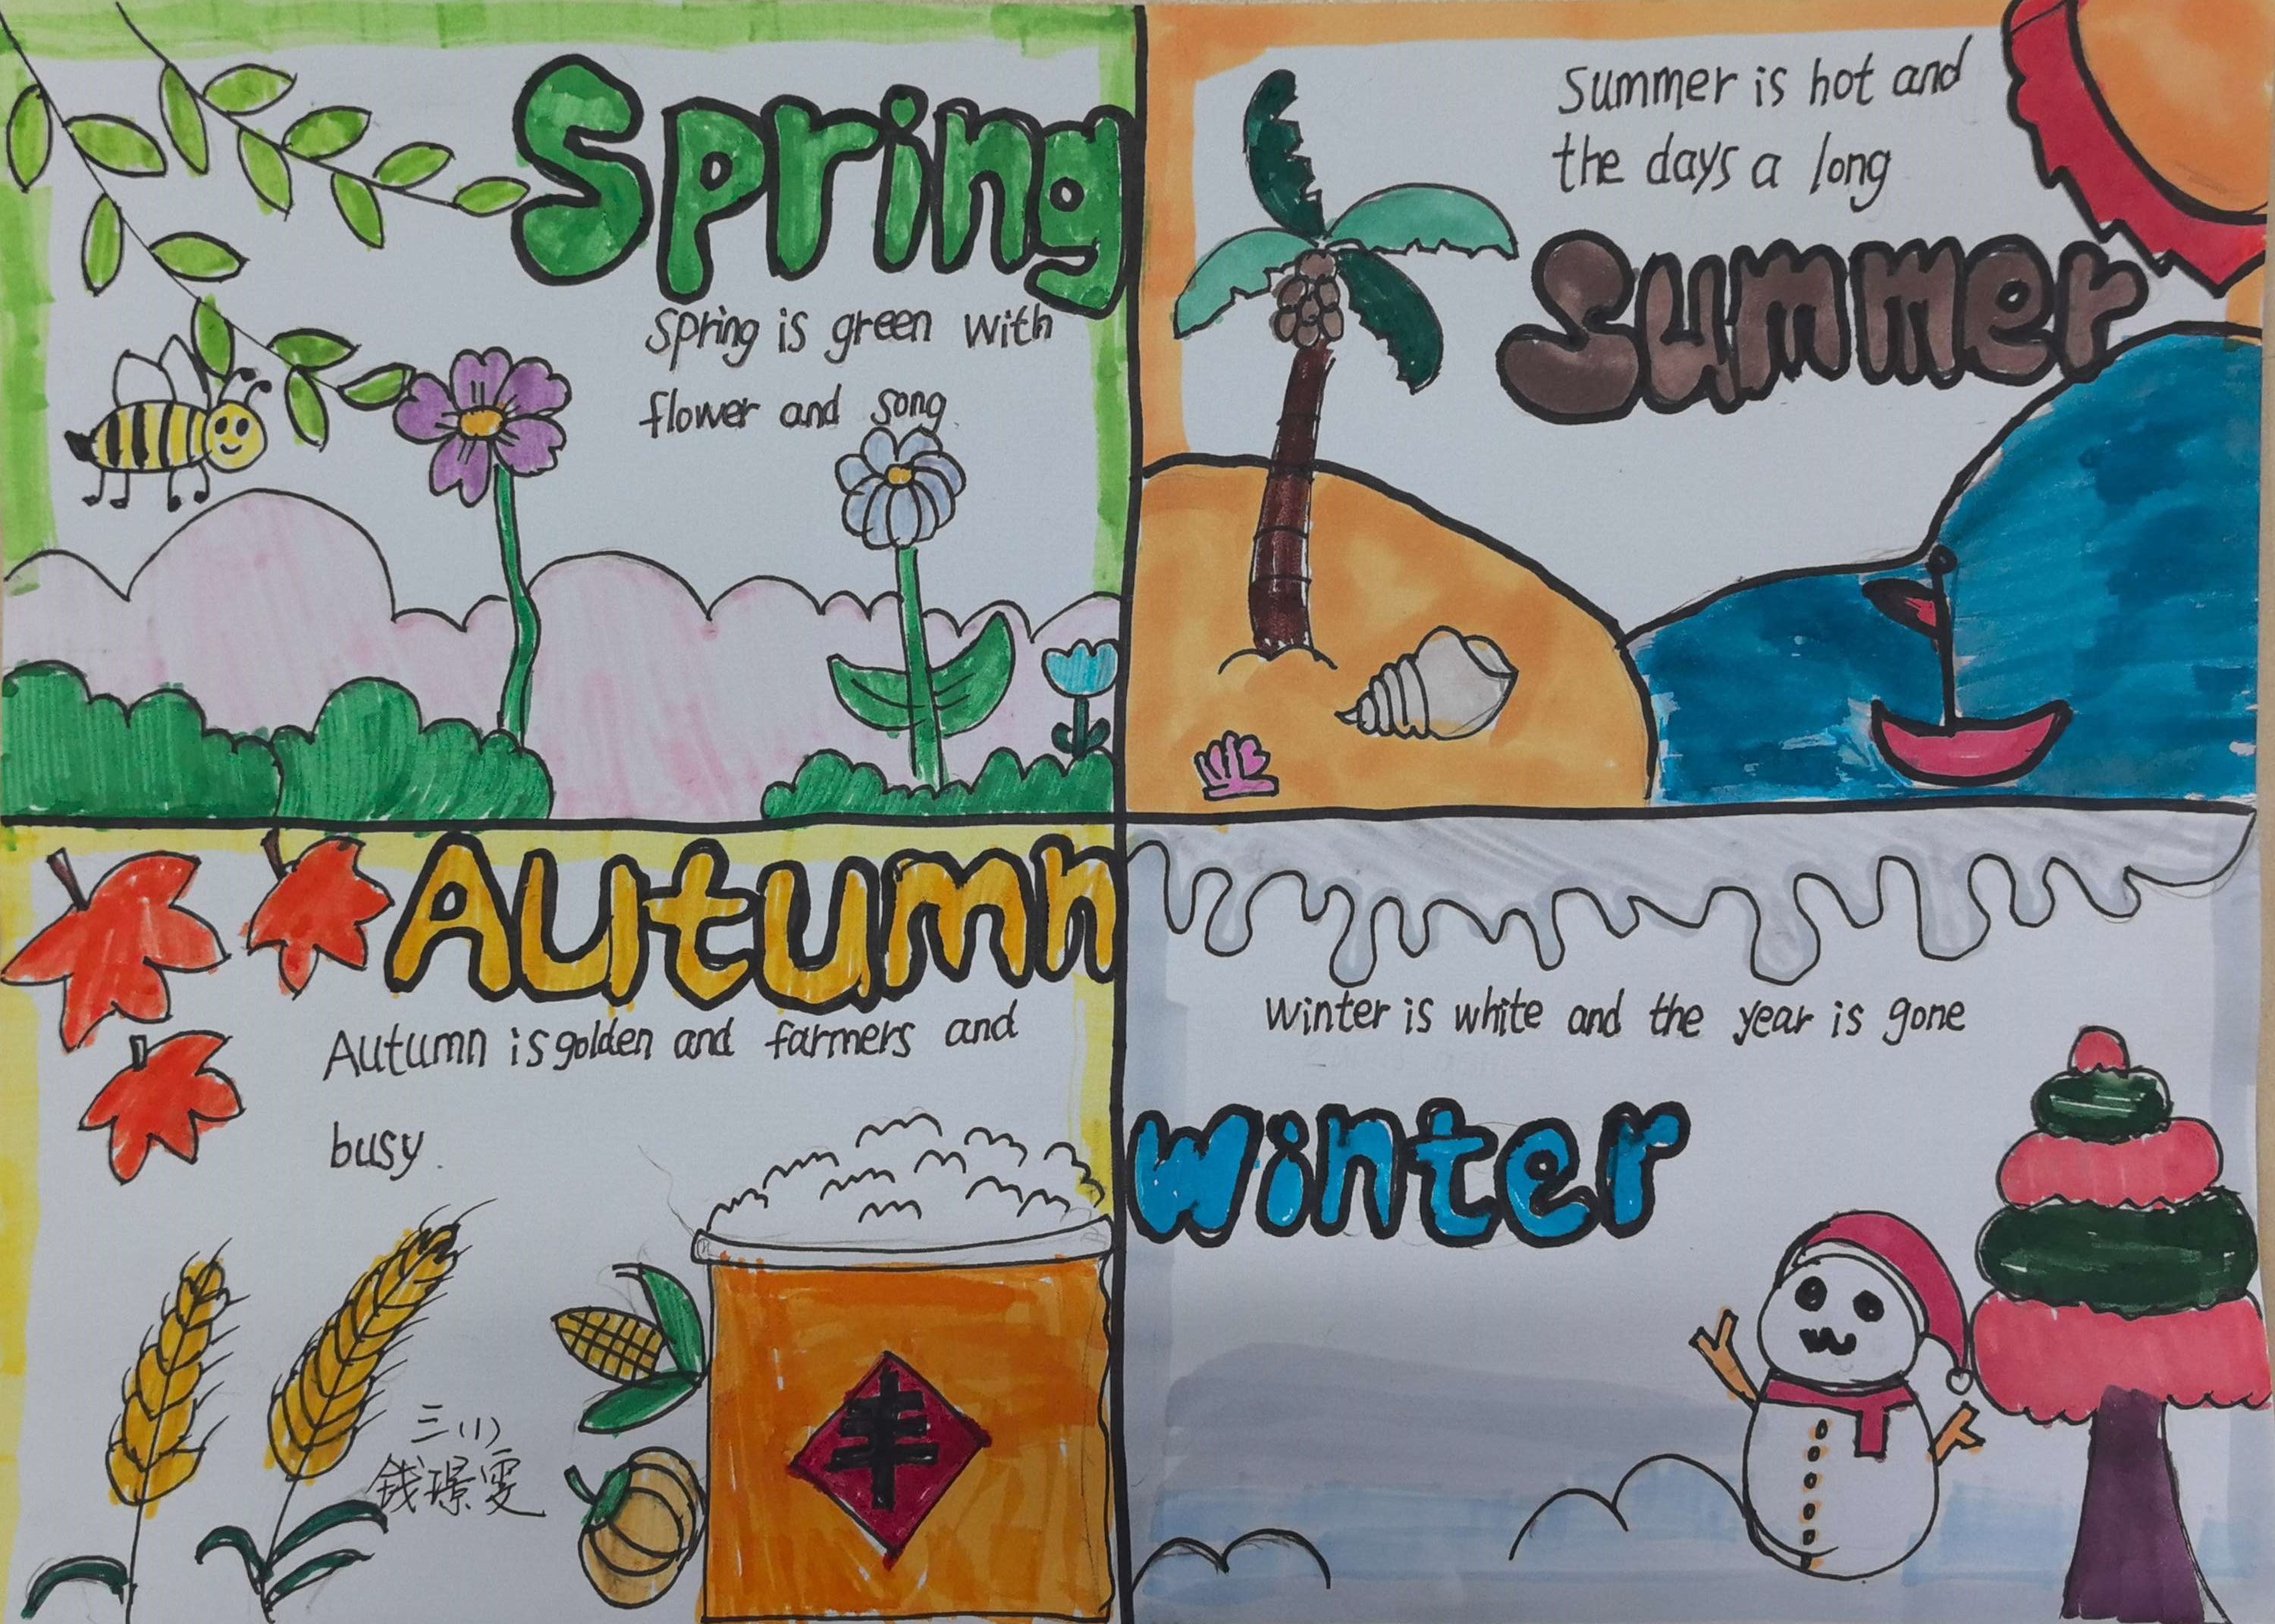 Spring
Spring is green with
flower and song
Summer is hot and
the days a long
Summer
Autumn
Autumn is golden and farmers and
busy.
丰
三(1)
钱璟雯
Winter is white and the year is gone
Winter